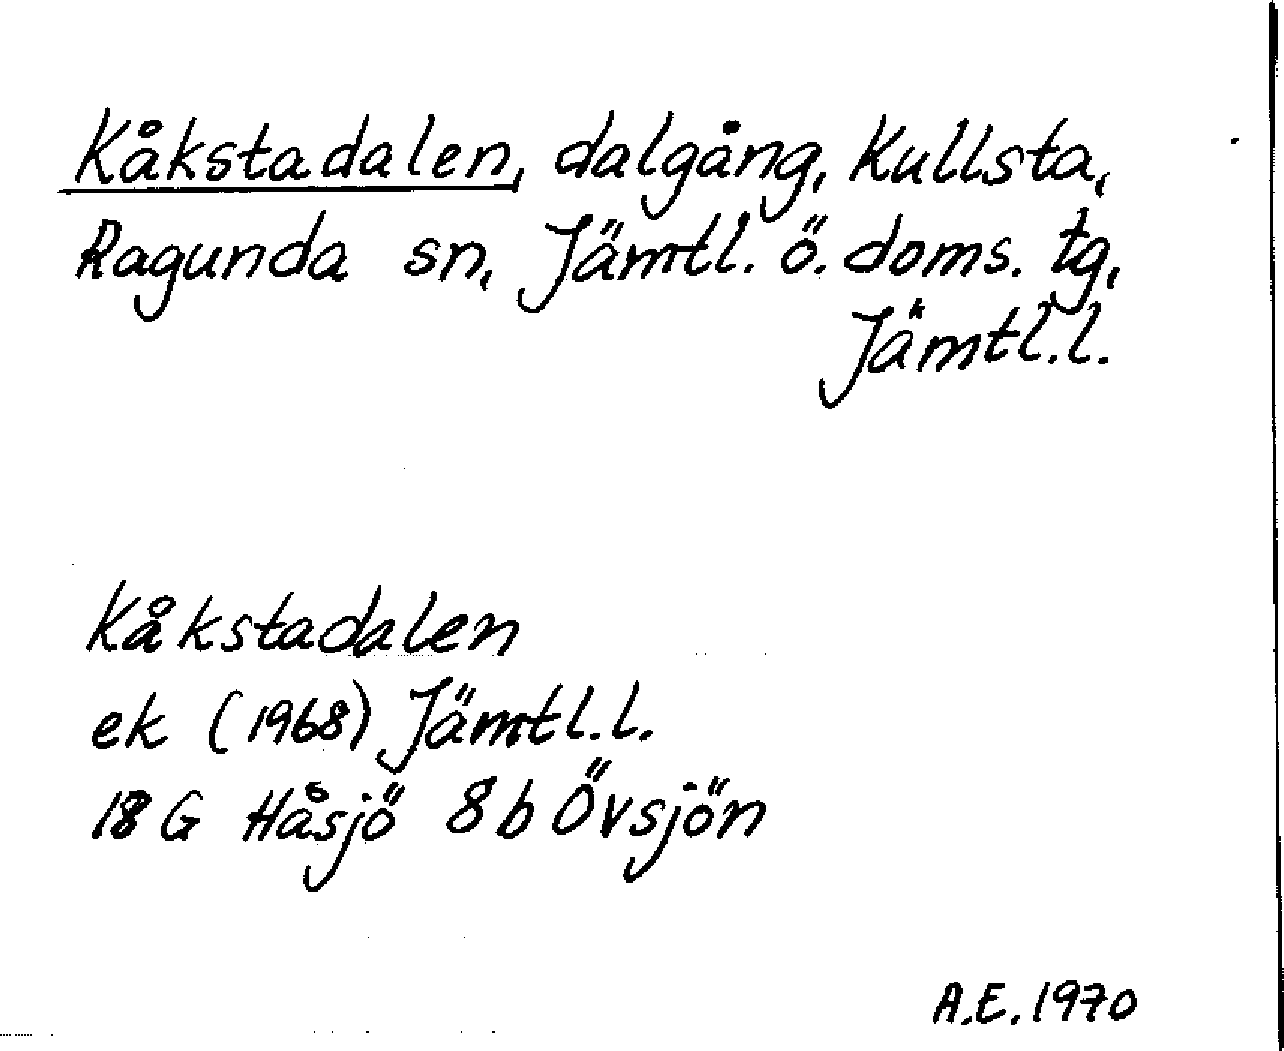 Kåkstadalen, dalgång, Kullsta,
Ragunda sn, Jämtl. ö. doms. tg,
Jämtl.l.
Kåkstadalen
ek (1968) Jämtl.l.
18 G Håsjö 8 b Övsjön
A.E. 1970